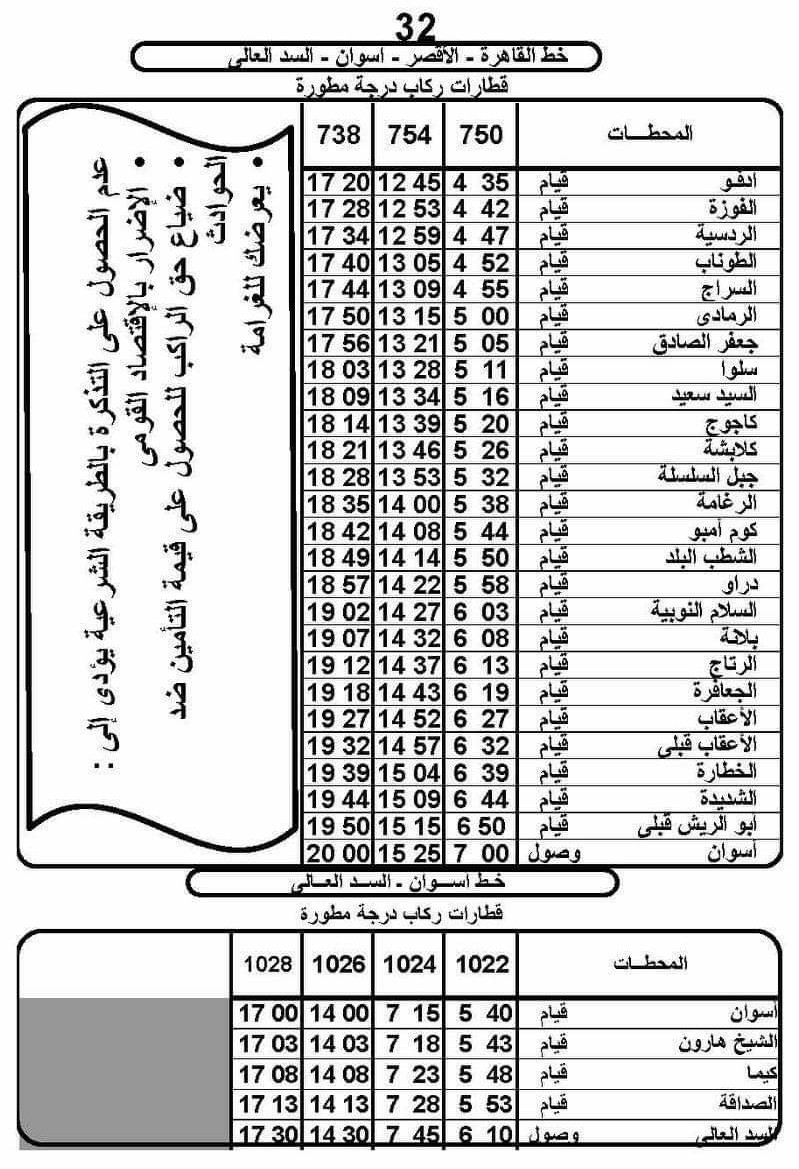 32
خط القاهرة - الأقصر - اسوان - السد العالى
قطارات ركاب درجة مطورة
المحطـــات 750 754 738
ادفـو قيام 4 35 12 45 17 20
الفوزة قيام 4 42 12 53 17 28
الردسية قيام 4 47 12 59 17 34
الطوناب قيام 4 52 13 05 17 40
السراج قيام 4 55 13 09 17 44
الرمادى قيام 5 00 13 15 17 50
جعفر الصادق قيام 5 05 13 21 17 56
سلوا قيام 5 11 13 28 18 03
السيد سعيد قيام 5 16 13 34 18 09
كاجوج قيام 5 20 13 39 18 14
كلابشة قيام 5 26 13 46 18 21
جبل السلسلة قيام 5 32 13 53 18 28
الرغامة قيام 5 38 14 00 18 35
كوم أمبو قيام 5 44 14 08 18 42
الشطب البلد قيام 5 50 14 14 18 49
دراو قيام 5 58 14 22 18 57
السلام النوبية قيام 6 03 14 27 19 02
بلانة قيام 6 08 14 32 19 07
الرتاج قيام 6 13 14 37 19 12
الجعافرة قيام 6 19 14 43 19 18
الأعقاب قيام 6 27 14 52 19 27
الأعقاب قبلى قيام 6 32 14 57 19 32
الخطارة قيام 6 39 15 04 19 39
الشديدة قيام 6 44 15 09 19 44
ابو الريش قبلى قيام 6 50 15 15 19 50
أسوان وصول 7 00 15 25 20 00
عدم الحصول على التذكرة بالطريقة الشرعية يؤدى إلى :
• الإضرار بالإقتصاد القومى
• ضياع حق الراكب للحصول على قيمة التأمين ضد
الحوادث
• يعرضك للغرامة
خط اسـوان - السـد العـالى
قطارات ركاب درجة مطورة
المحطـــات 1022 1024 1026 1028
أسوان قيام 5 40 7 15 14 00 17 00
الشيخ هارون قيام 5 43 7 18 14 03 17 03
كيما قيام 5 48 7 23 14 08 17 08
الصداقة قيام 5 53 7 28 14 13 17 13
السد العالى وصول 6 10 7 45 14 30 17 30